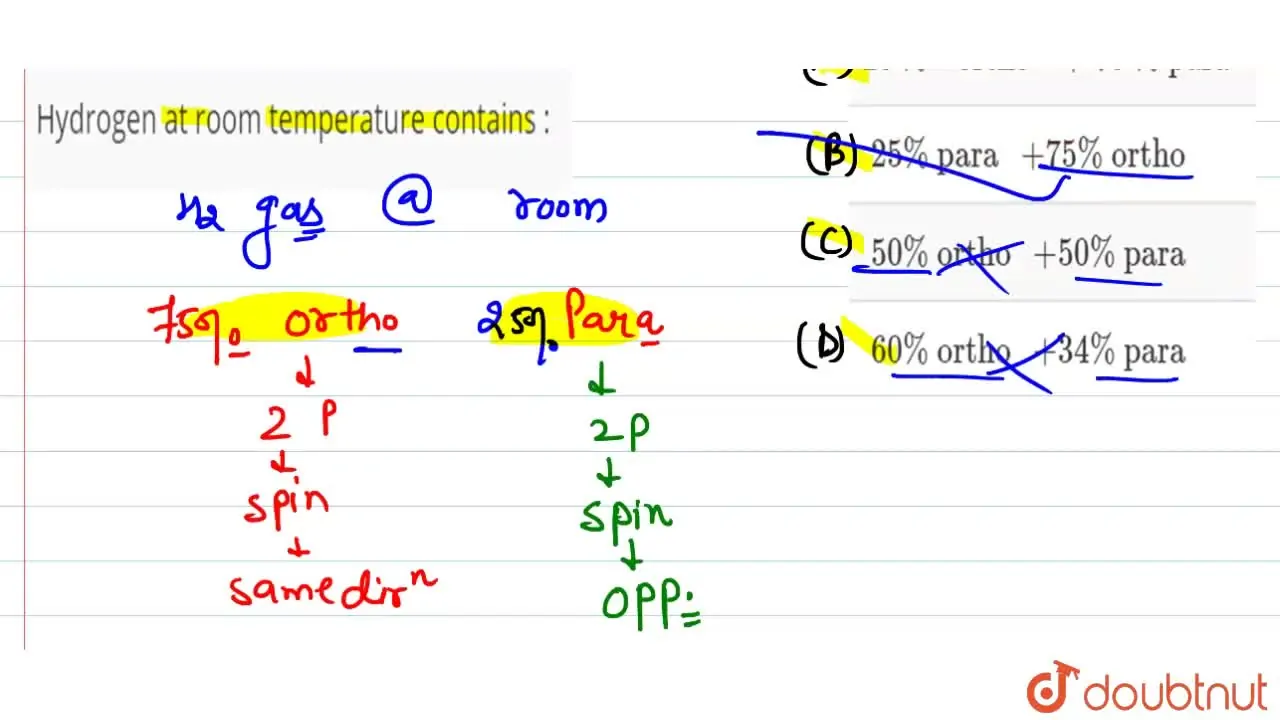 Hydrogen at room temperature contains :
(B) 25% para +75% ortho
(C) 50% ortho +50% para
(D) 60% ortho +34% para
H2 gas @ room
75% ortho
2 P
spin
same dirⁿ
25% Para
2P
spin
OPP.
doubtnut